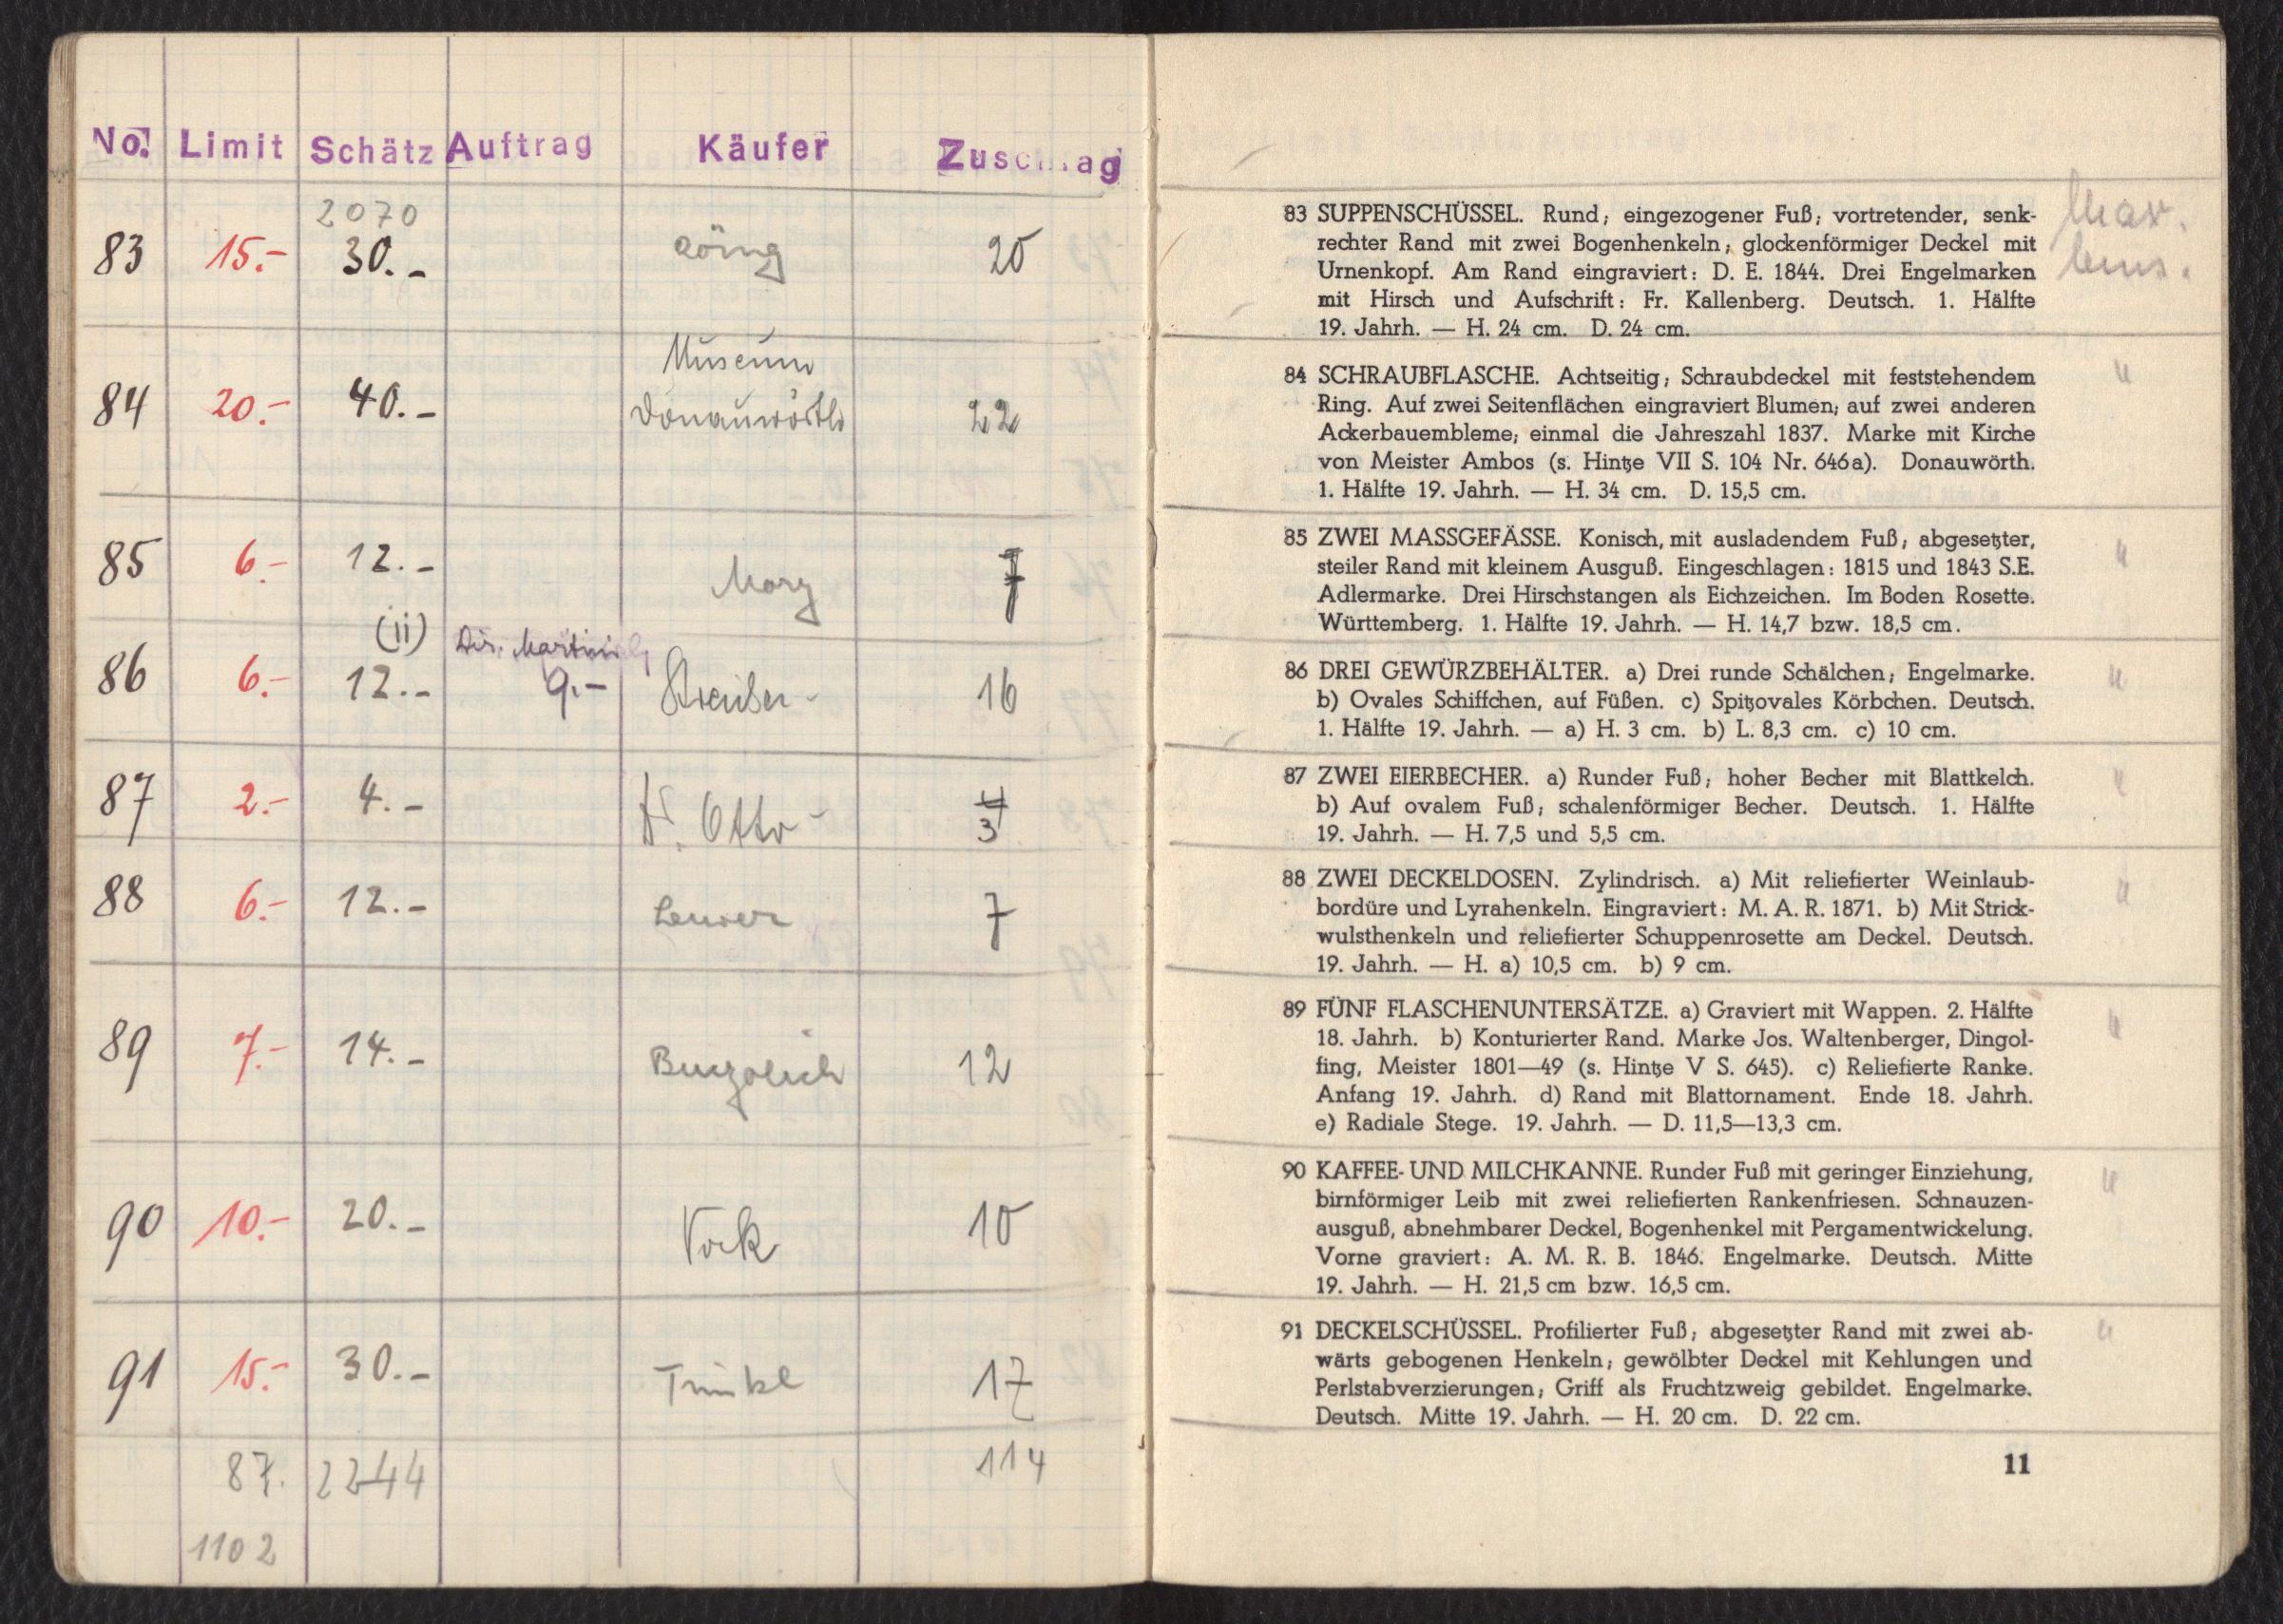 No. Limit Schätz Auftrag Käufer Zuschlag
2070
83 15.- 30.- 20
Museum
84 20.- 40.- Donauwörth 22
85 6.- 12.- 7
(ii) Dir.
86 6.- 12.- 9.- 16
87 2.- 4.- Dr. Otto 4
3
88 6.- 12.- 7
89 7.- 14.- 12
90 10.- 20.- Vock 10
91 15.- 30.- 17
87. 2244 114
1102
83 SUPPENSCHÜSSEL. Rund; eingezogener Fuß; vortretender, senk-
rechter Rand mit zwei Bogenhenkeln; glockenförmiger Deckel mit
Urnenkopf. Am Rand eingraviert: D. E. 1844. Drei Engelmarken
mit Hirsch und Aufschrift: Fr. Kallenberg. Deutsch. 1. Hälfte
19. Jahrh. — H. 24 cm. D. 24 cm.
84 SCHRAUBFLASCHE. Achtseitig; Schraubdeckel mit feststehendem
Ring. Auf zwei Seitenflächen eingraviert Blumen; auf zwei anderen
Ackerbauembleme; einmal die Jahreszahl 1837. Marke mit Kirche
von Meister Ambos (s. Hintze VII S. 104 Nr. 646a). Donauwörth.
1. Hälfte 19. Jahrh. — H. 34 cm. D. 15,5 cm.
"
85 ZWEI MASSGEFÄSSE. Konisch, mit ausladendem Fuß; abgesetzter,
steiler Rand mit kleinem Ausguß. Eingeschlagen: 1815 und 1843 S.E.
Adlermarke. Drei Hirschstangen als Eichzeichen. Im Boden Rosette.
Württemberg. 1. Hälfte 19. Jahrh. — H. 14,7 bzw. 18,5 cm.
"
86 DREI GEWÜRZBEHÄLTER. a) Drei runde Schälchen; Engelmarke.
b) Ovales Schiffchen, auf Füßen. c) Spitzovales Körbchen. Deutsch.
1. Hälfte 19. Jahrh. — a) H. 3 cm. b) L. 8,3 cm. c) 10 cm.
"
87 ZWEI EIERBECHER. a) Runder Fuß; hoher Becher mit Blattkelch.
b) Auf ovalem Fuß; schalenförmiger Becher. Deutsch. 1. Hälfte
19. Jahrh. — H. 7,5 und 5,5 cm.
"
88 ZWEI DECKELDOSEN. Zylindrisch. a) Mit reliefierter Weinlaub-
bordüre und Lyrahenkeln. Eingraviert: M. A. R. 1871. b) Mit Strick-
wulsthenkeln und reliefierter Schuppenrosette am Deckel. Deutsch.
19. Jahrh. — H. a) 10,5 cm. b) 9 cm.
"
89 FÜNF FLASCHENUNTERSÄTZE. a) Graviert mit Wappen. 2. Hälfte
18. Jahrh. b) Konturierter Rand. Marke Jos. Waltenberger, Dingol-
fing, Meister 1801—49 (s. Hintze V S. 645). c) Reliefierte Ranke.
Anfang 19. Jahrh. d) Rand mit Blattornament. Ende 18. Jahrh.
e) Radiale Stege. 19. Jahrh. — D. 11,5—13,3 cm.
"
90 KAFFEE- UND MILCHKANNE. Runder Fuß mit geringer Einziehung,
birnförmiger Leib mit zwei reliefierten Rankenfriesen. Schnauzen-
ausguß, abnehmbarer Deckel, Bogenhenkel mit Pergamentwickelung.
Vorne graviert: A. M. R. B. 1846. Engelmarke. Deutsch. Mitte
19. Jahrh. — H. 21,5 cm bzw. 16,5 cm.
"
91 DECKELSCHÜSSEL. Profilierter Fuß; abgesetzter Rand mit zwei ab-
wärts gebogenen Henkeln; gewölbter Deckel mit Kehlungen und
Perlstabverzierungen; Griff als Fruchtzweig gebildet. Engelmarke.
Deutsch. Mitte 19. Jahrh. — H. 20 cm. D. 22 cm.
"
11